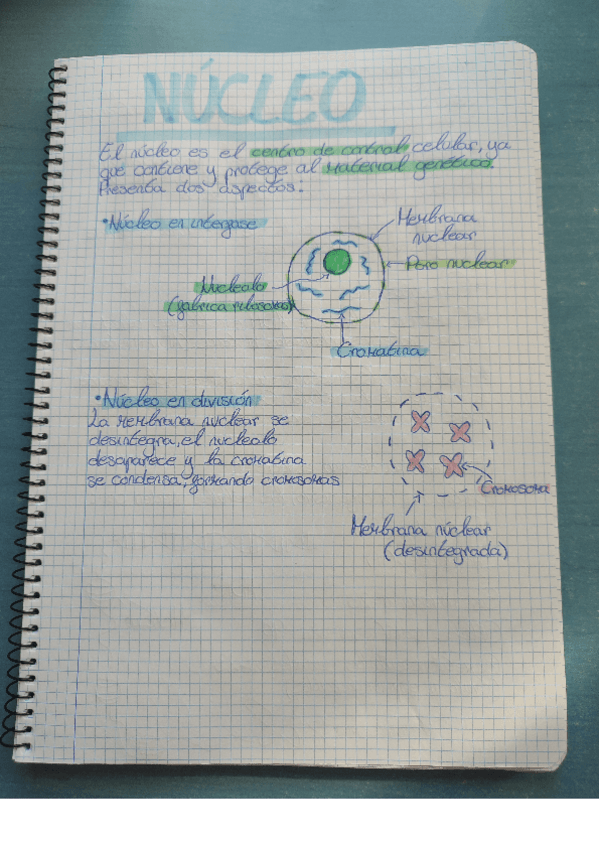 NÚCLEO
El núcleo es el centro de control celular, ya
que contiene y protege al material genético.
Presenta dos aspectos:
•Núcleo en interfase
Membrana
nuclear
Poro nuclear
Nucleolo
(fabrica ribosomas)
Cromatina
•Núcleo en división
La membrana nuclear se
desintegra, el nucleolo
desaparece y la cromatina
se condensa, formando cromosomas
Cromosoma
Membrana núclear
(desintegrada)